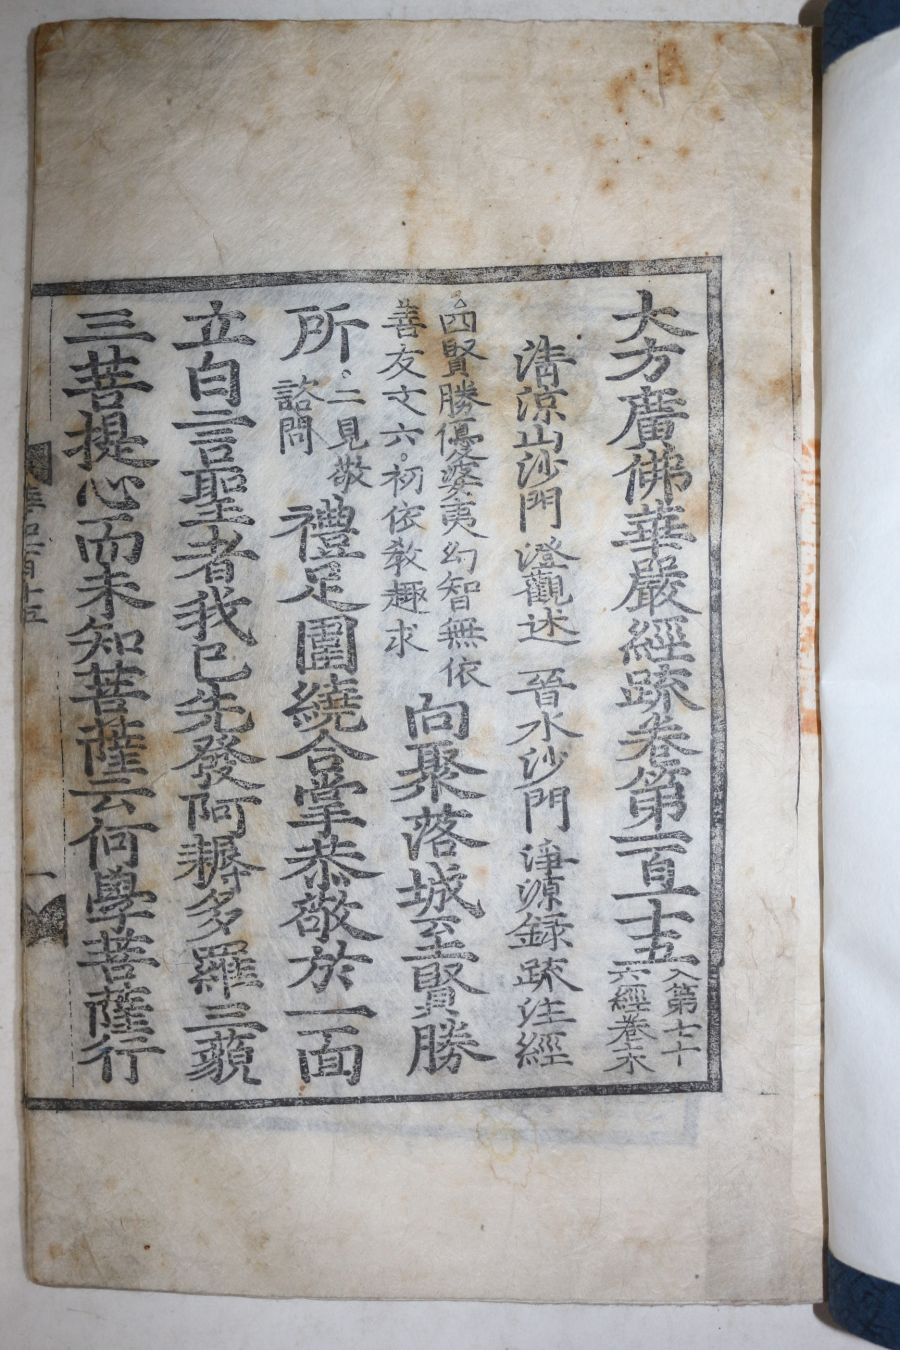 大方廣佛華嚴經疏卷第一百十五 入第七十
六經卷末
清涼山沙門 澄觀述 晉水沙門 淨源録疏注經
四賢勝優婆夷幻智無依
善友文六初依教趣求 向聚落城至賢勝
所 二見敬
諮問 禮足圍繞合掌恭敬於一面
立白言聖者我已先發阿耨多羅三藐
三菩提心而未知菩薩云何學菩薩行